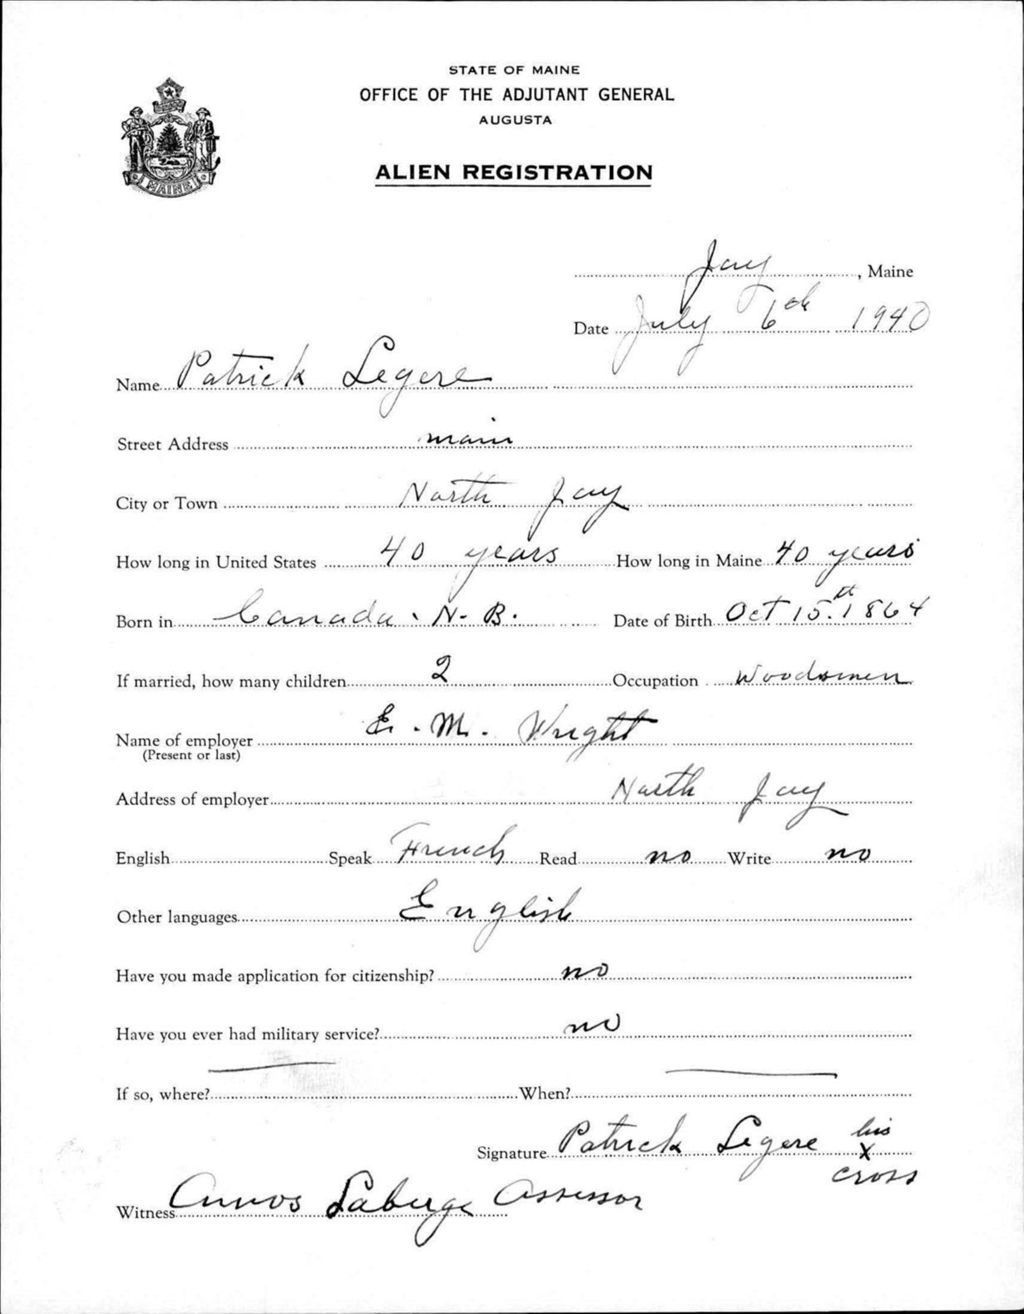 STATE OF MAINE
OFFICE OF THE ADJUTANT GENERAL
AUGUSTA
ALIEN REGISTRATION
MAINE
Jay, Maine
Date July 6th 1940
Name Patrick Legere
Street Address main
City or Town North Jay
How long in United States 40 years How long in Maine 40 years
Born in Canada. N. B. Date of Birth Oct 15th 1864
If married, how many children 2 Occupation Woodsmen
Name of employer E. M. Wright
(Present or last)
Address of employer North Jay
English Speak French Read no Write no
Other languages English
Have you made application for citizenship? no
Have you ever had military service? no
If so, where? When?
Signature Patrick Legere his
X
cross
Witness Laberge Assessor